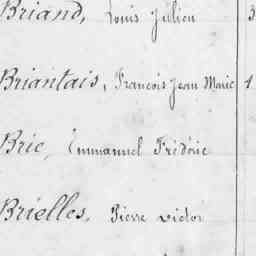 Briand, Louis Julien 3
Briantais, Francois Jean Marie 4
Brie, Emmanuel Frédéric
Brielles, Pierre victor